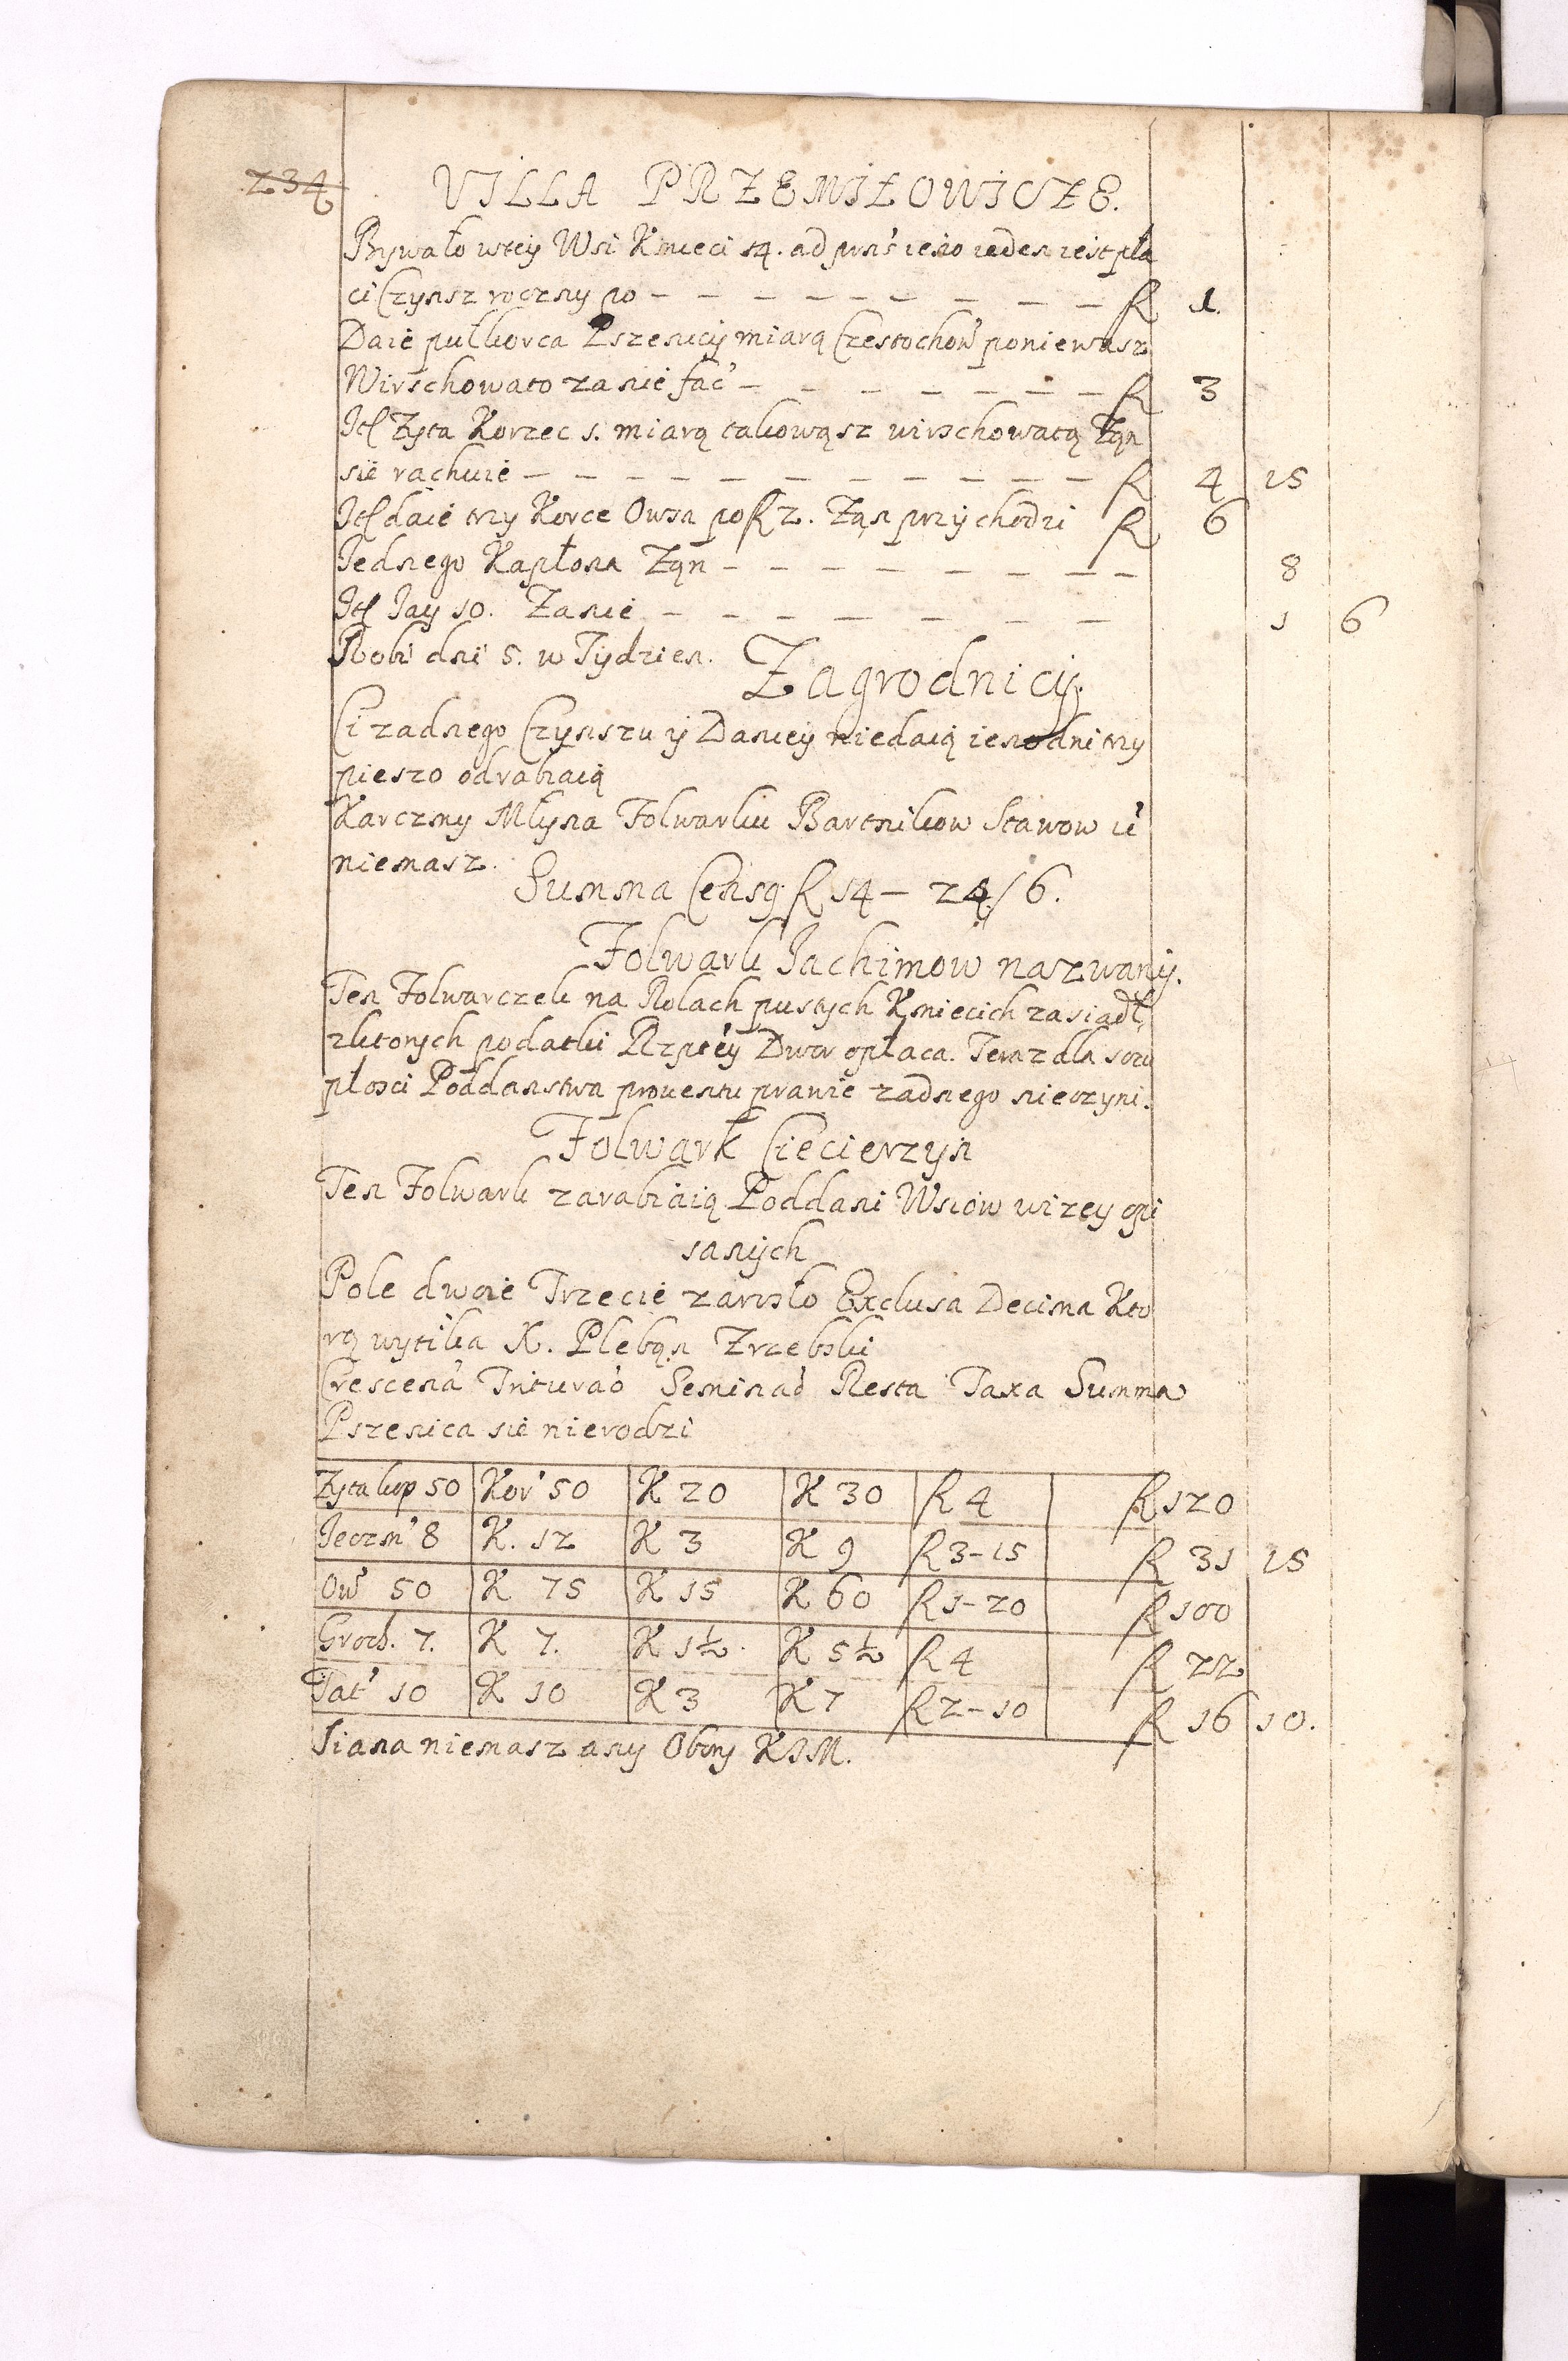 234
VILLA PRZEMIŁOWICZE.
Bywało wtey Wsi Kmieci 14. ad pns ieno ieden iest pła
ci Czynsz roczny po — — — — — — — — — — R 1.
Daie pułkorca Pszenicy miarą Czestochow' poniewasz
Wirschowato zanie fac' — — — — — — — R 3
Itl Zyta Korzec 1. miarą takowąsz wirschowatą Zqn
sie rachuie — — — — — — — — — — — R 4 15
Itl daie trzy Korce Owsa po R 2. Zqn przychodzi R 6
Iednego Kapłona Zqn — — — — — — — — — 8
Itl Iay 10. Zanie — — — — — — — — 1 6
Robi dni 5. w Tydzien.
Zagrodnicy.
Ci zadnego Czynszu y Daniey niedaią ieno dni trzy
pieszo odrabiaią
Karczmy Młyna Folwarku Bartnikow Stawow u
niemasz.
Summa Censq R 14 — 24 / 6.
Folwark Iachimow nazwany.
Ten Folwarczek na Rolach pustych Kmiecich zasiadł,
zktorych podatki Rzptey Dwor opłaca. Teraz dla szczu
płosci Poddanstwa prouentu prawie zadnego nieczyni.
Folwark Ciecierzyn
Ten Folwark zarabiaią Poddani Wsiow wizey opi
sanych
Pole dwoie Trzecie zarosło Exclusa Decima Kto
rą wytika X. Pleban Zrzebski
Crescena' Triturao' Seminao' Resta Taxa Summa
Pszenica sie nierodzi
Zyta kop 50 Kor' 50 K 20 K 30 R 4 R 120
Ieczm' 8 K. 12 K 3 K 9 R 3-15 R 31 15
Ow' 50 K 75 K 15 K 60 R 1-20 R 100
Groch. 7. K 7. K 1½. K 5½ R 4 R 22
Tat' 10 K 10 K 3 K 7 R 2-10 R 16 10.
Siana niemasz any Obory KIM.